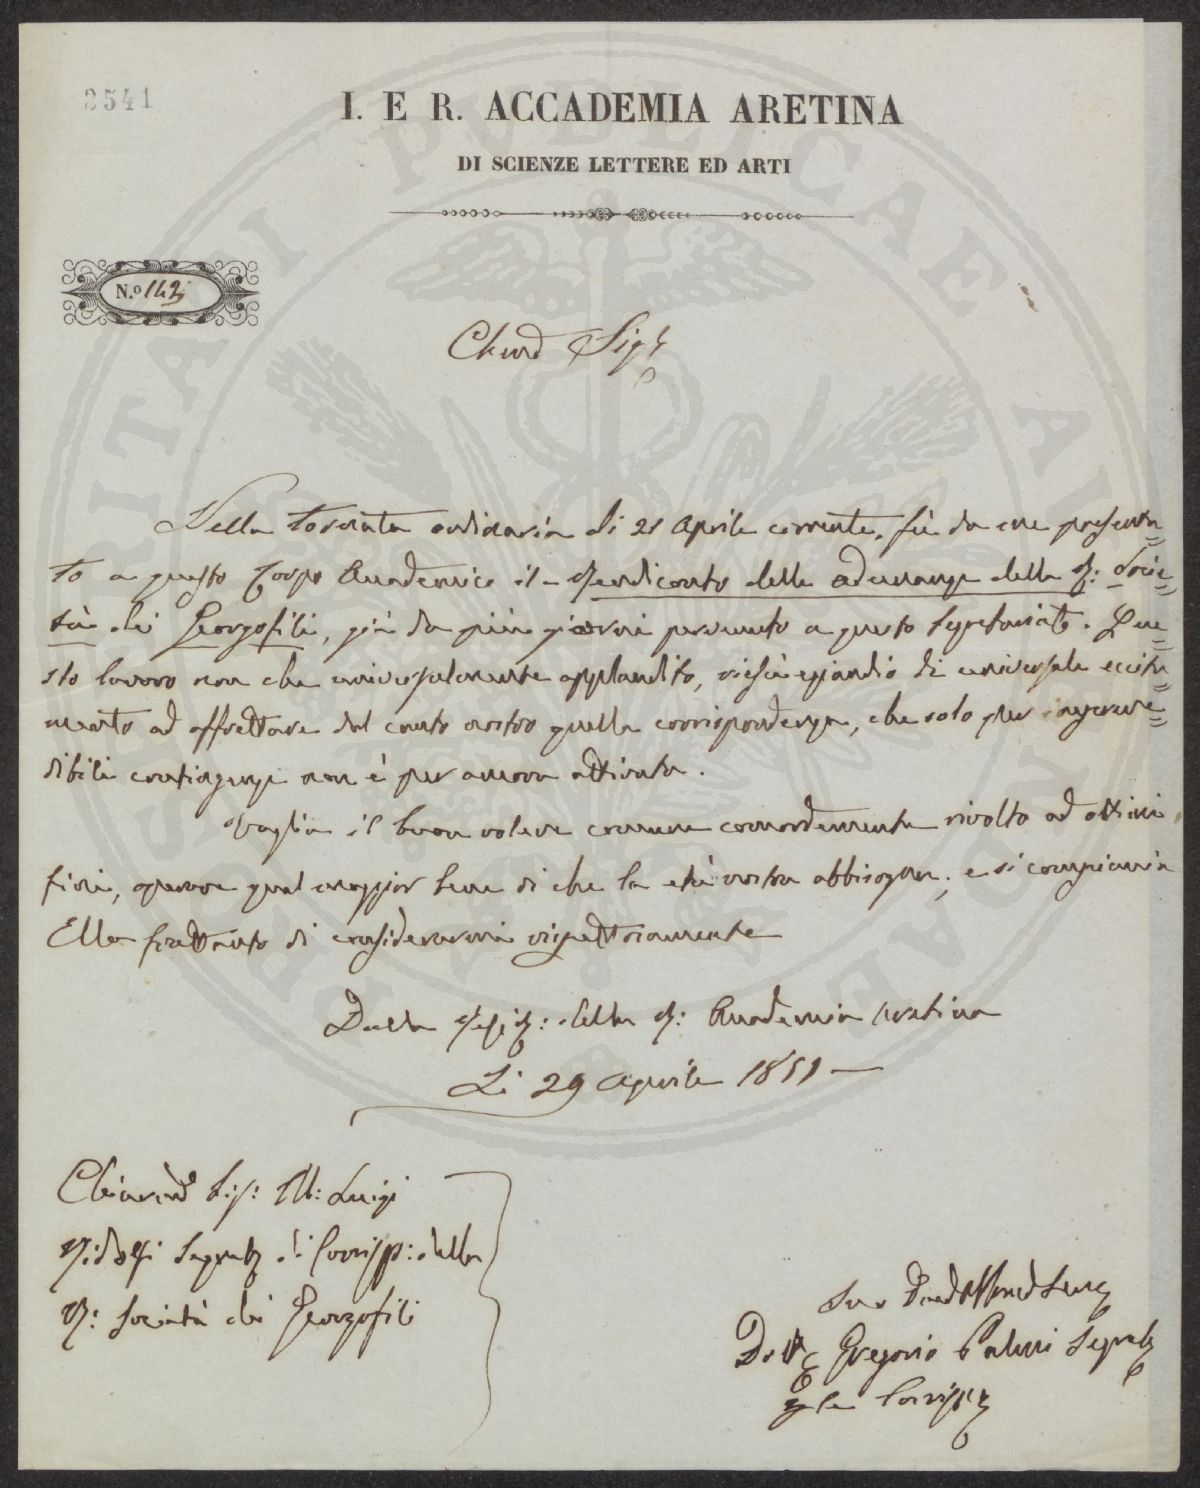 2541
I. E R. ACCADEMIA ARETINA
DI SCIENZE LETTERE ED ARTI
N.º 142
Chmo Sigr
Nella tornata ordinaria di 21 Aprile corrente, fù da me presenta=
to a questo Corpo Accademico il Rendiconto delle adunanze della R: Socie=
tà dei Georgofili, già da più giorni pervenuto a questo Segretariato. Que=
sto lavoro non che universalmente applaudito, eziandio di universale eccita=
mento ad affrettare dal canto nostro quella corrispondenza, che solo per impreve=
dibili contingenze non è per ancora attivata.
Voglia il buon volere comune concordemente rivolto ad ottimi
fini, operare quel maggior bene di che la età nostra abbisogna; e si compiaccia
Ella frattanto di considerarmi rispettosamente
Dalla Resiza: della R: Accademia Aretina
Li 29 Aprile 1851
Chiarmo Sig: M: Luigi
Ridolfi Segreto di Corrisp: della
R: Società dei Georgofili
Suo Devmo Servo
Dottr Gregorio Palmi Segreto
p la Corrispza
PUBLICAE